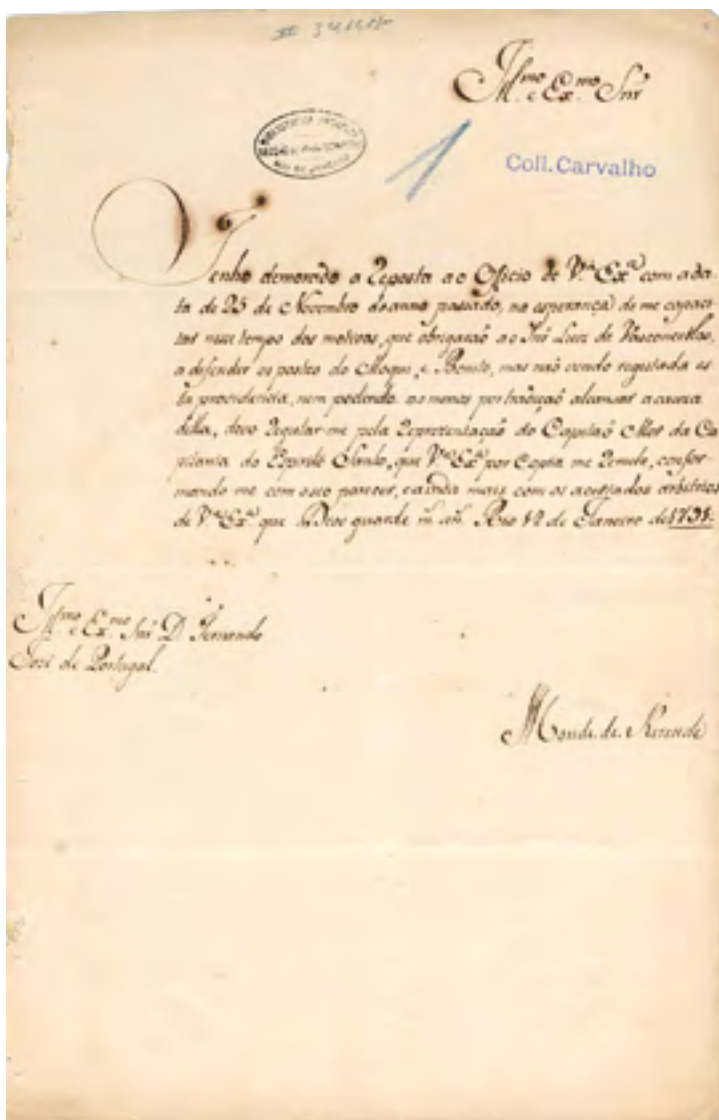 Ill.mo e Ex.mo Snr
Coll. Carvalho
Tenho demorado a Reposta ao Officio de V.ª Ex.ª com a da-
ta de 25 de Novembro do anno passado, na esperança de me capaci-
tar nesse tempo dos motivos, que obrigaraõ ao Snr Luiz de Vasconcellos,
a defender os portos do e Benito, mas naõ vendo registada es-
ta providencia, nem podendo ao menos por tradiçaõ alcansar a cauza
della, devo Regular-me pela Reprezentaçaõ do Capitaõ Mor da Ca-
pitania do Espirito Santo, que V.ª Ex.ª por Copia me Remete, confor-
mando me com esse parecer, e ainda mais com os acertados arbitrios
de V.ª Ex.ª que Deos guarde m.s an.s Rio 12 de Janeiro de
Ill.mo e Ex.mo Snr D. Fernando
José de Portugal.
Conde de Rezende